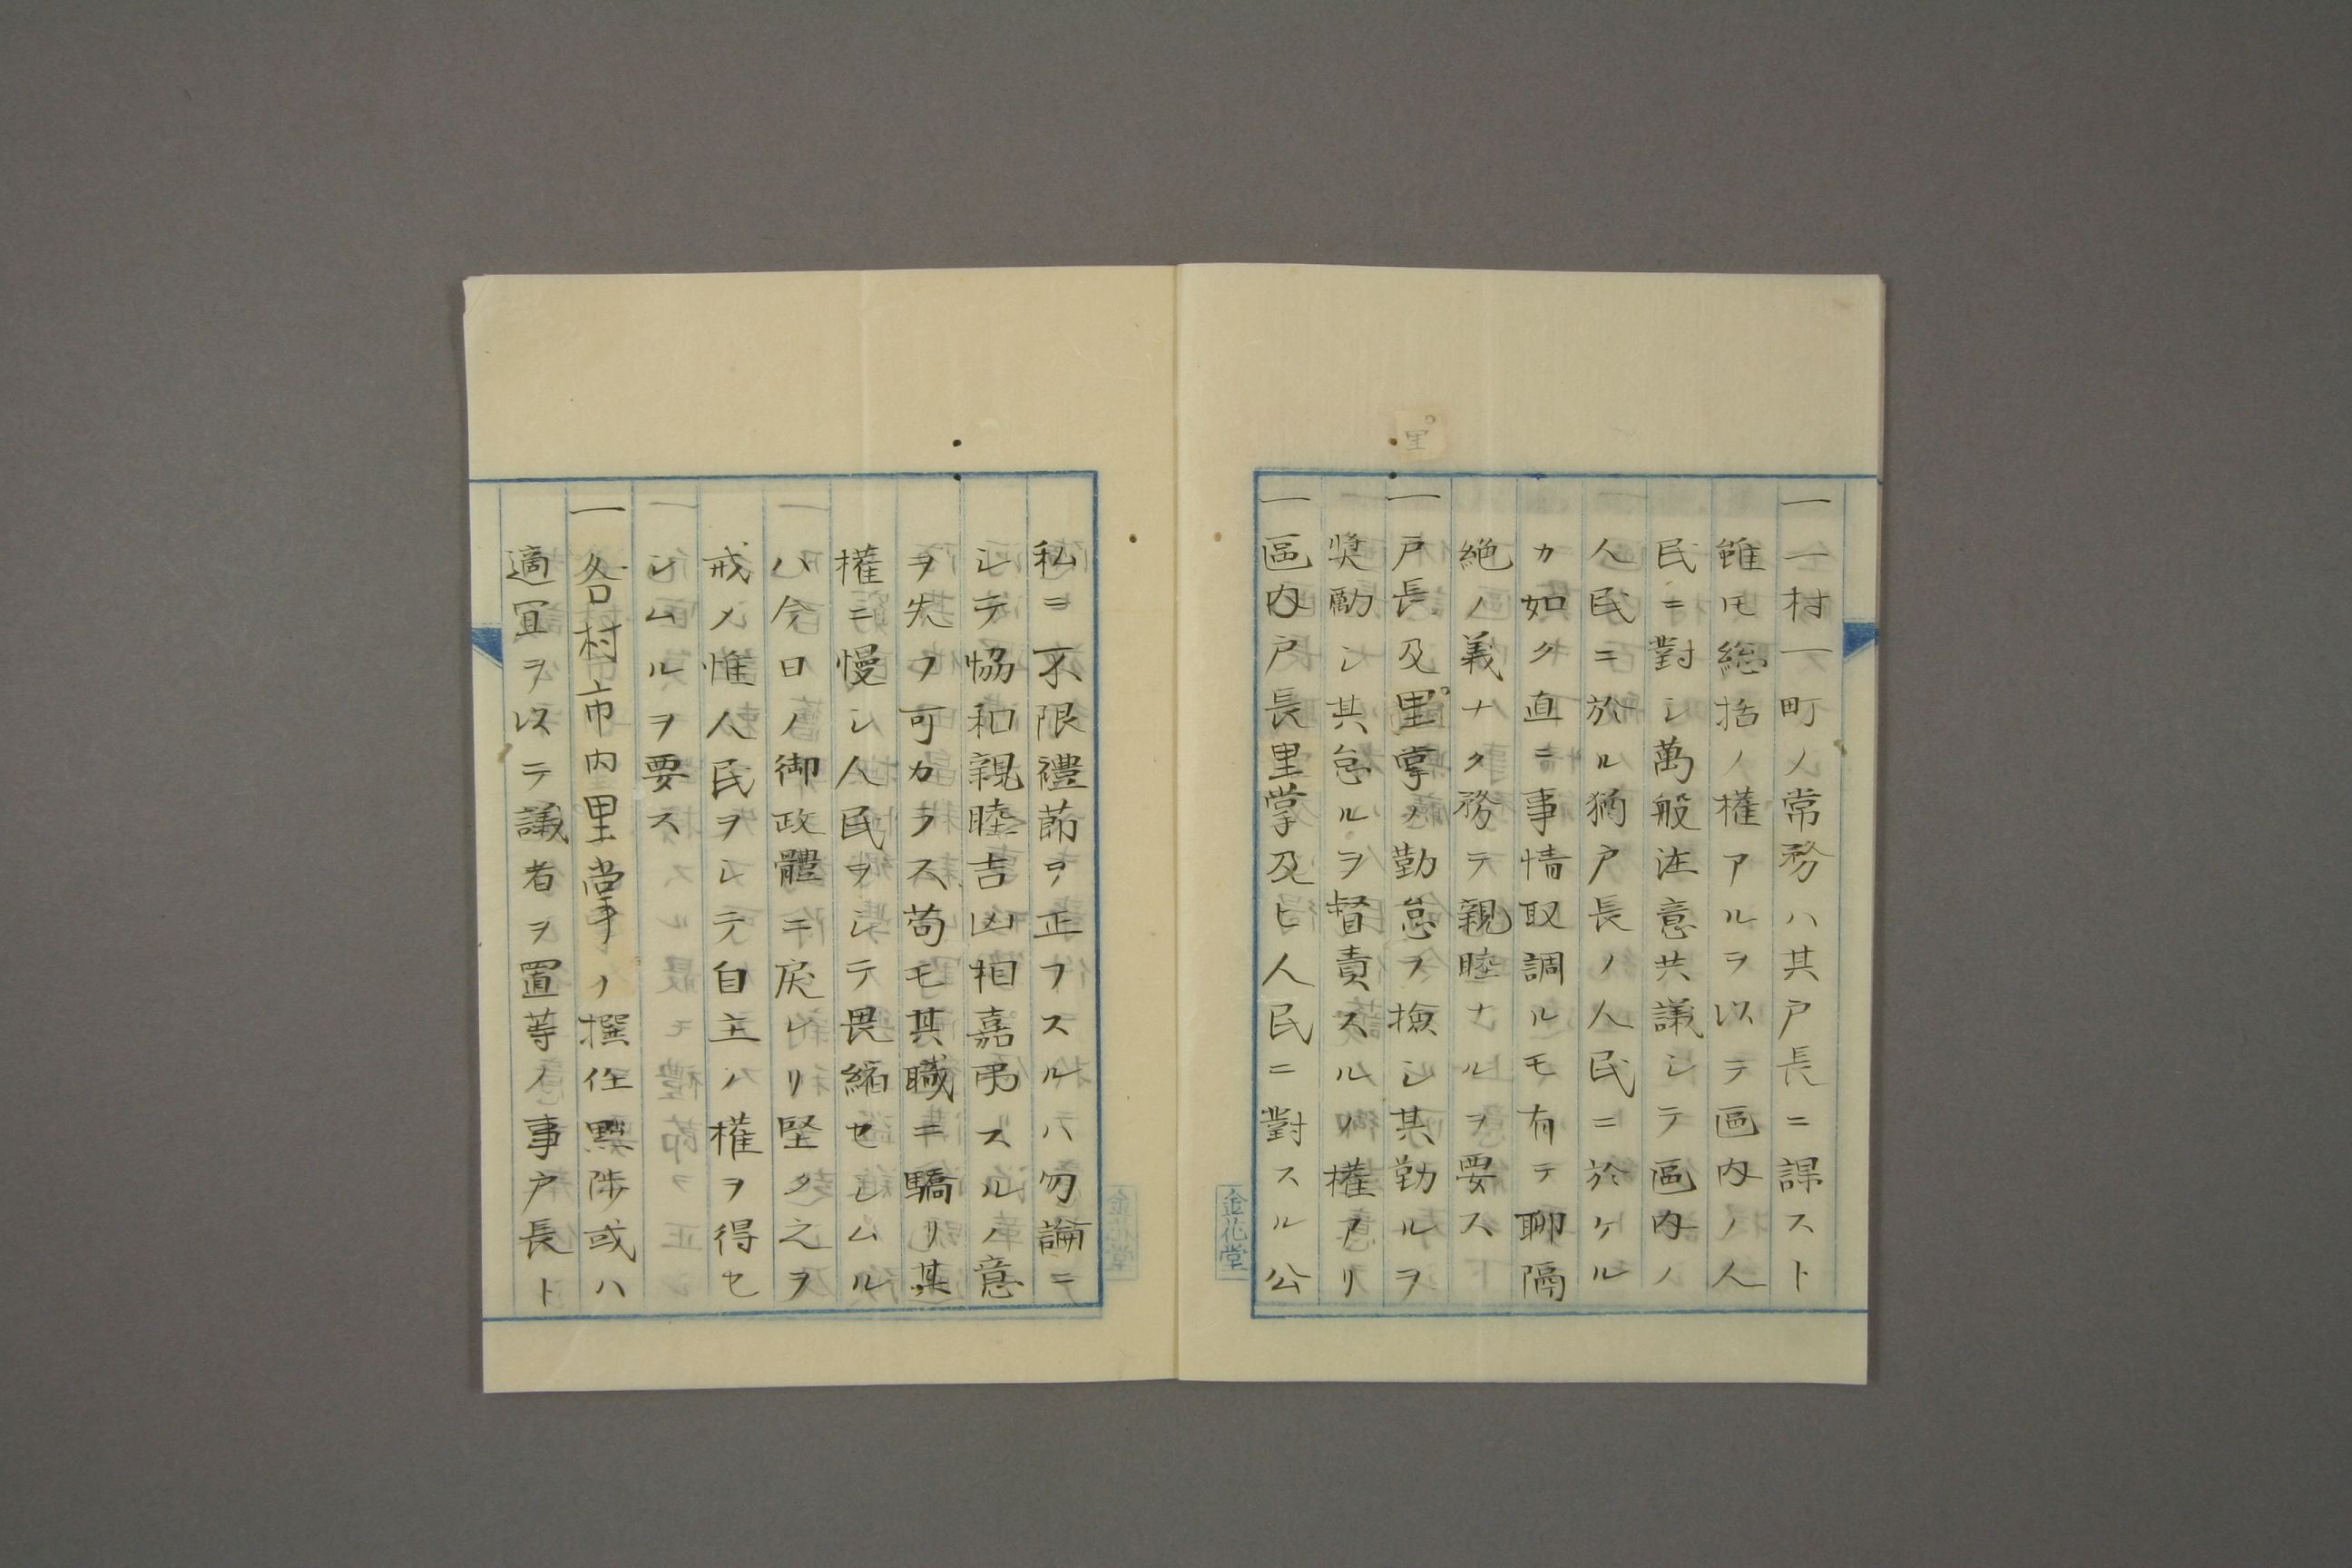 一一村一町ノ常務ハ其戸長ニ課スト
雖モ総括ノ權アルヲ以テ區内ノ人
民ニ對シ萬般注意共議シテ區内ノ
人民ニ於ル猶戸長ノ人民ニ於ケル
カ如ク直ニ事情取調ルモ有テ聊隔
絶ノ義ナク務テ親睦ナルヲ要ス
里
一戸長及里掌ノ勤怠ヲ撿シ其勤ルヲ
奬勵シ其怠ルヲ督責スルノ權アリ
一區内戸長里掌及ヒ人民ニ對スル公
金花堂
私ヲ不限禮莭ヲ正フスルハ勿論ニ
シテ恊和親睦吉凶相嘉弔スルノ意
ヲ失フ可カラス苟モ其職ニ驕リ其
權ニ慢シ人民ヲシテ畏縮セシムル
ハ今日ノ御政體ニ戻レリ堅ク之ヲ
戒メ惟人民ヲシテ自主ノ權ヲ得セ
シムルヲ要ス
一各村市内里掌ノ撰任黜陟或ハ
適宜ヲ以テ議者ヲ置等ノ事戸長ト